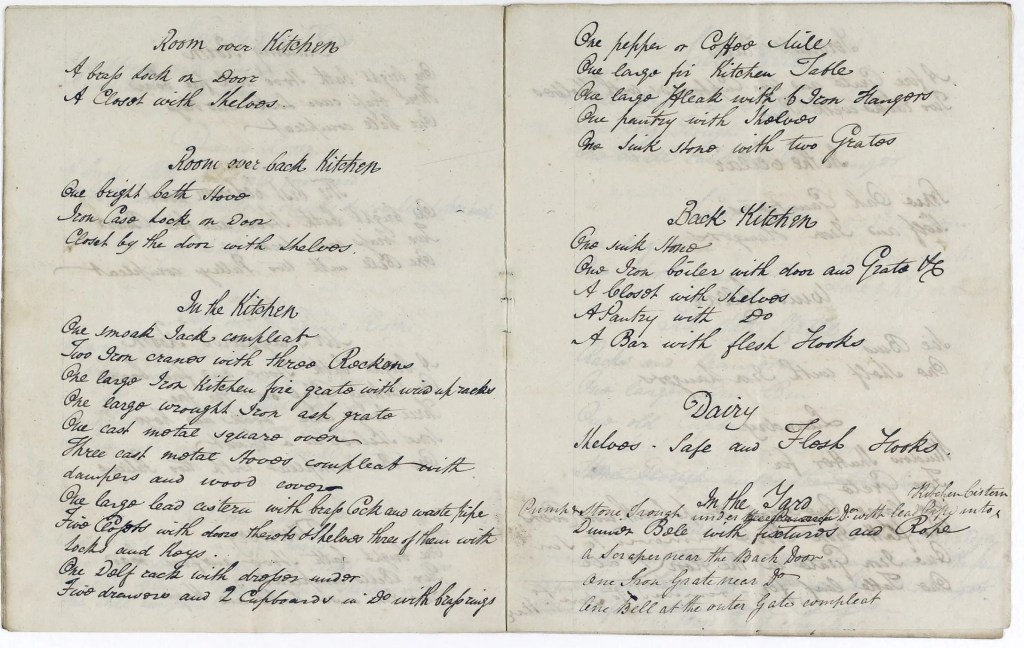 Room over Kitchen
A brass Lock on Door
A Closet with Shelves.
Room over back Kitchen
One bright bath Stove
Iron Case Lock on Door
Closet by the door with Shelves.
In the Kitchen
One smoak Jack compleat
Two Iron cranes with three Reckons
One large Iron Kitchen fire grate with wind up racks
One large wrought Iron ash grate
One cast metal square oven
Three cast metal Stoves compleat with
dampers and wood cover
One large lead cistern with brass Cock and waste pipe
Five Closets with doors thereto & Shelves three of them with
locks and keys.
One Delf rack with dresser under
Five drawers and 2 Cupboards in Do with brass rings
One pepper or Coffee Mill
One large fir Kitchen Table
One large Fleak with 6 Iron Hangers
One pantry with Shelves
One Sink Stone with two Grates
Back Kitchen
One sink Stone
One Iron boiler with door and Grate &C
A Closet with Shelves
A Pantry with Do
A Bar with flesh Hooks
Dairy
Shelves - Safe and Flesh Hooks.
In the Yard
Kitchen Cistern
Pump & Stone Trough under Do with lead pipe into
Dinner Bell with fixtures and Rope
a Scraper near the Back Door
One Iron Grate near Do
One Bell at the outer Gate compleat